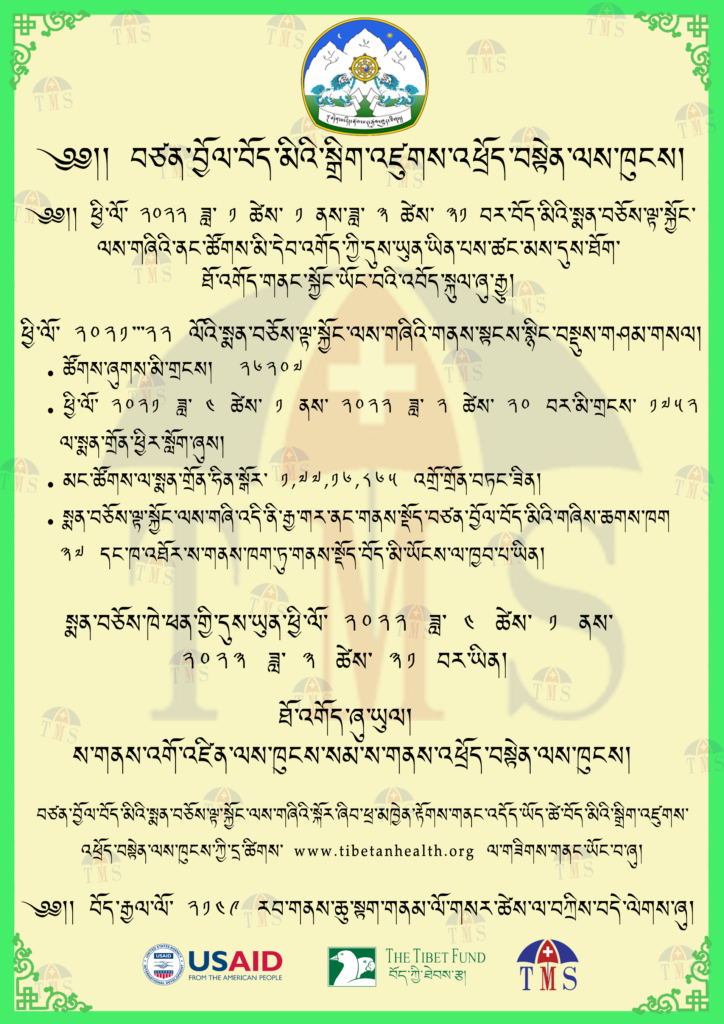 ༄༅།། བཙན་བྱོལ་བོད་མིའི་སྒྲིག་འཛུགས་འཕྲོད་བསྟེན་ལས་ཁུངས།
༄༅།། ཕྱི་ལོ་ ༢༠༢༢ ཟླ་ ༡ ཚེས་ ༡ ནས་ཟླ་ ༣ ཚེས་ ༣༡ བར་བོད་མིའི་སྨན་བཅོས་ལྟ་སྐྱོང་
ལས་གཞིའི་ནང་ཚོགས་མི་དེབ་འགོད་ཀྱི་དུས་ཡུན་ཡིན་པས་ཚང་མས་དུས་ཐོག་
ཐོ་འགོད་གནང་སྐྱོང་ཡོང་བའི་འབོད་སྐུལ་ཞུ་རྒྱུ།
ཕྱི་ལོ་ ༢༠༢༡་་་༢༢ ལོའི་སྨན་བཅོས་ལྟ་སྐྱོང་ལས་གཞིའི་གནས་སྟངས་སྙིང་བསྡུས་གཤམ་གསལ།
• ཚོགས་ཞུགས་མི་གྲངས། ༢༦༢༠༧
• ཕྱི་ལོ་ ༢༠༢༡ ཟླ་ ༤ ཚེས་ ༡ ནས་ ༢༠༢༢ ཟླ་ ༢ ཚེས་ ༢༠ བར་མི་གྲངས་ ༡༧༥༢
ལ་སྨན་གྲོན་ཕྱིར་སློག་ཞུས།
• མང་ཚོགས་ལ་སྨན་གྲོན་ཧིན་སྒོར་ ༡,༧༧,༡༦,༨༦༥ འགྲོ་གྲོན་བཏང་ཟིན།
• སྨན་བཅོས་ལྟ་སྐྱོང་ལས་གཞི་འདི་ནི་རྒྱ་གར་ནང་གནས་སྡོད་བཙན་བྱོལ་བོད་མིའི་གཞིས་ཆགས་ཁག
༣༧ དང་ཁ་འཐོར་ས་གནས་ཁག་ཏུ་གནས་སྡོད་བོད་མི་ཡོངས་ལ་ཁྱབ་པ་ཡིན།
སྨན་བཅོས་ཁེ་ཕན་གྱི་དུས་ཡུན་ཕྱི་ལོ་ ༢༠༢༢ ཟླ་ ༤ ཚེས་ ༡ ནས་
༢༠༢༣ ཟླ་ ༣ ཚེས་ ༣༡ བར་ཡིན།
ཐོ་འགོད་ཞུ་ཡུལ།
ས་གནས་འགོ་འཛིན་ལས་ཁུངས་སམ་ས་གནས་འཕྲོད་བསྟེན་ལས་ཁུངས།
བཙན་བྱོལ་བོད་མིའི་སྨན་བཅོས་ལྟ་སྐྱོང་ལས་གཞིའི་སྐོར་ཞིབ་ཕྲ་མཁྱེན་རྟོགས་གནང་འདོད་ཡོད་ཚེ་བོད་མིའི་སྒྲིག་འཛུགས་
འཕྲོད་བསྟེན་ལས་ཁུངས་ཀྱི་དྲ་ཚིགས་ www.tibetanhealth.org ལ་གཟིགས་གནང་ཡོང་བ་ཞུ།
༄༅།། བོད་རྒྱལ་ལོ་ ༢༡༤༩ རབ་གནས་ཆུ་སྟག་གནམ་ལོ་གསར་ཚེས་ལ་བཀྲིས་བདེ་ལེགས་ཞུ།
USAID
FROM THE AMERICAN PEOPLE
THE TIBET FUND
བོད་ཀྱི་ཐེབས་རྩ།
TMS